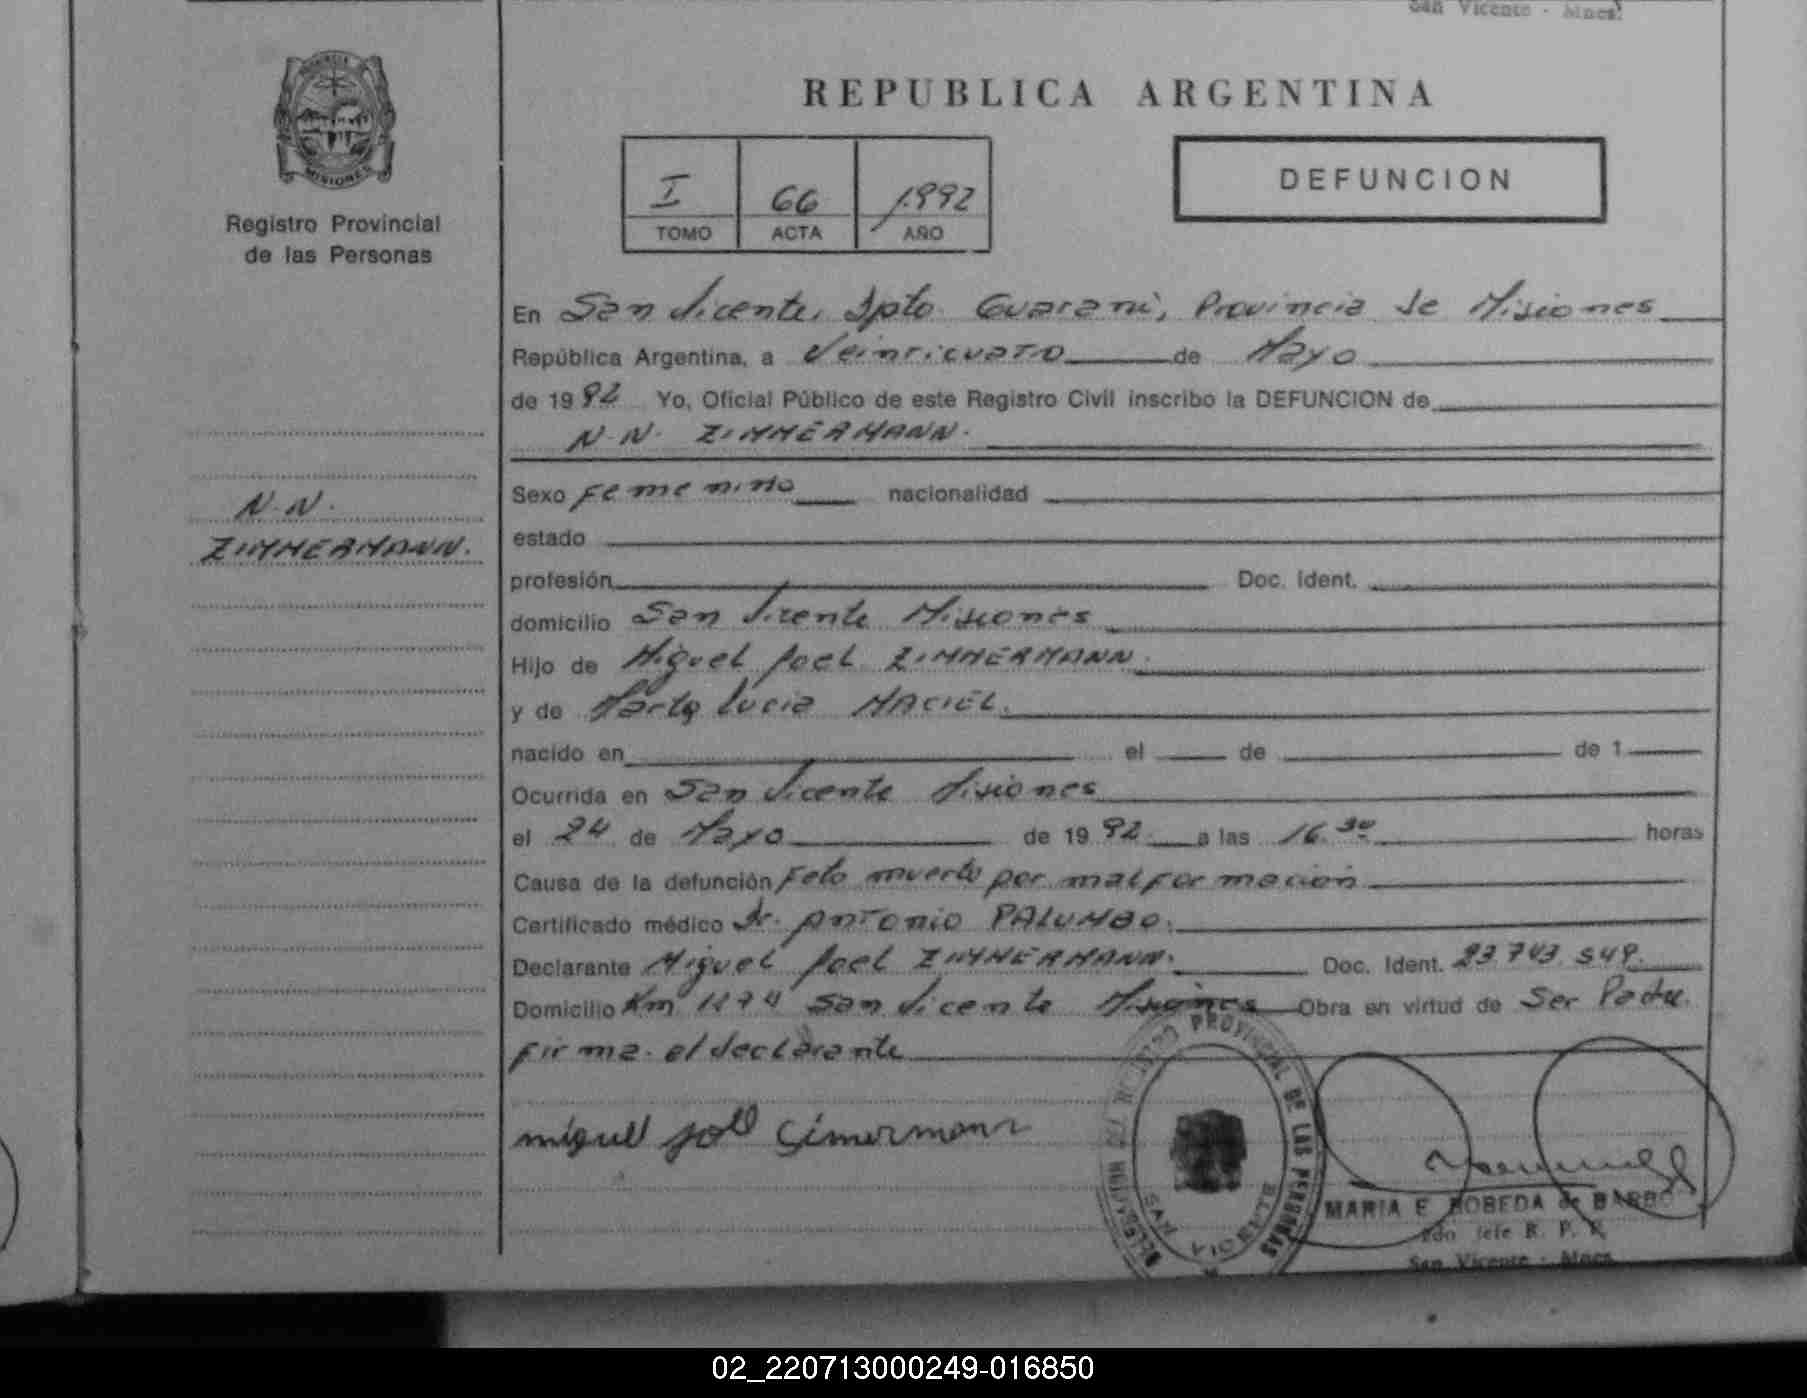 San Vicente - Mnes.
PROVINCIA
MISIONES
Registro Provincial
de las Personas
REPUBLICA ARGENTINA
I 66 1992
TOMO ACTA AÑO
DEFUNCION
N.N.
ZIMMERMANN.
En San Vicente, Dpto. Guaraní, Provincia de Misiones
República Argentina, a Veinticuatro de Mayo
de 1992 Yo, Oficial Público de este Registro Civil inscribo la DEFUNCION de
N.N. ZIMMERMANN.
Sexo Femenino nacionalidad
estado
profesión Doc. Ident.
domicilio San Vicente Misiones
Hijo de Miguel Joel ZIMMERMANN.
y de Marta Lucia MACIEL.
nacido en el de de 1
Ocurrida en San Vicente Misiones
el 24 de Mayo de 1992 a las 16.30 horas
Causa de la defunción Feto muerto por malformación
Certificado médico Dr. ANTONIO PALUMBO.
Declarante Miguel Joel ZIMMERMANN. Doc. Ident. 23.743.549.
Domicilio Km San Vicente Misiones Obra en virtud de Ser Padre.
firma el declarante
miguel joel Cimermann
REGISTRO PROVINCIAL DE LAS PERSONAS
DELEGACION
SAN VICENTE
MARIA E. BOBEDA de BARBO
2do Jefe R. P. P.
San Vicente - Mnes.
02_220713000249-016850